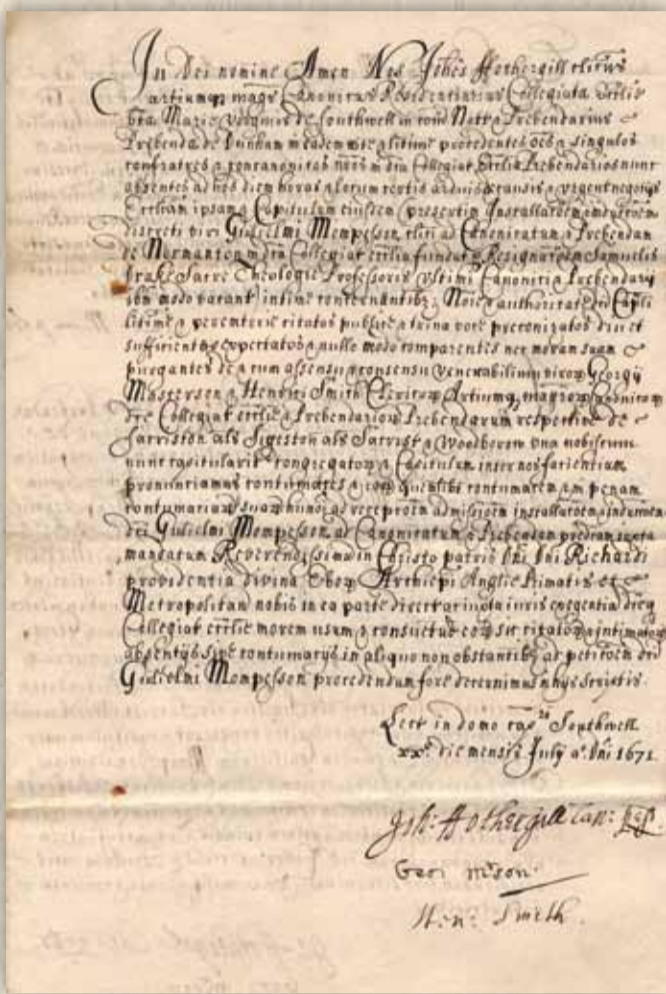 In Dei nomine Amen Nos Johēs Fothergill clericus
artiumq magr Canonicus Residentiarius Collegiatæ ecclie
btæ Marie virginis de Southwell in com Nottr Prebendarius
Prebendæ de Dunham in eadem rite a litime procedentes oēs a singulos
confratres a concanonicos nros in dm Collegiat Ecclia Prebendarios nunc
absentes ad hos diem horas a locum certis arduis causis a urgent negotijs
Eccliam ipsam a Capitulum eiusdem presertim Installacōem
discreti viri Gulielmi Mompesson clici ad Canonicatum a Prebendam
de Normanton in dm Collegiat ecclia fundat p Resignacōem Samuelis
Drake Sacre Theologie Professoris ultimi Canonici a Prebendarij
ibm modo vacant intime concernantibz, Noīe a authoritate dci Capli
litime a peremtorie citatos publice a trina voce preconizatos diu et
sufficienter expectatos a nullo modo comparentes nec moram suam
purgantes de a cum assensu a consensu venerabilium viror Georgij
Masterson a Henrici Smith Clericor Artiumq magror Canonicor
dce Collegiat ecclie a Prebendarior Prebendarum respective de
Sacriston als Segeston als Sacrist a Woodborow una nobiscum
nunc capitularit congregator a Capitulum inter nos facientium
pronuntiamus contumaces a eor quemlibet contumacem in penam
contumaciar suar humōi ac recepcōem admissiōem installacōem a inductiōem
dci Gulielmi Mompesson ad Canonicatum a Prebendam predcam iuxta
mandatum Reverendissimi in Christo patris Dni Dni Richardi
providentia divina Ebor Archiepi Anglie Primatis et
Metropolitan nobis in ea parte direct ac iuxta iuris exegentia dceq
Collegiat ecclie morem usum a consuetud eor sic citator a intimator
absentijs sive contumacijs in aliquo non obstantibz ac petitōem dci
Gulielmi Mompesson procedendum fore decernimus in hijs scriptis.
Lect in domo capri Southwell
xx° die mensis July a° Dni 1671
Joh: Fothergill Can: Res.
Geor: Mrson.
Hen: Smith.